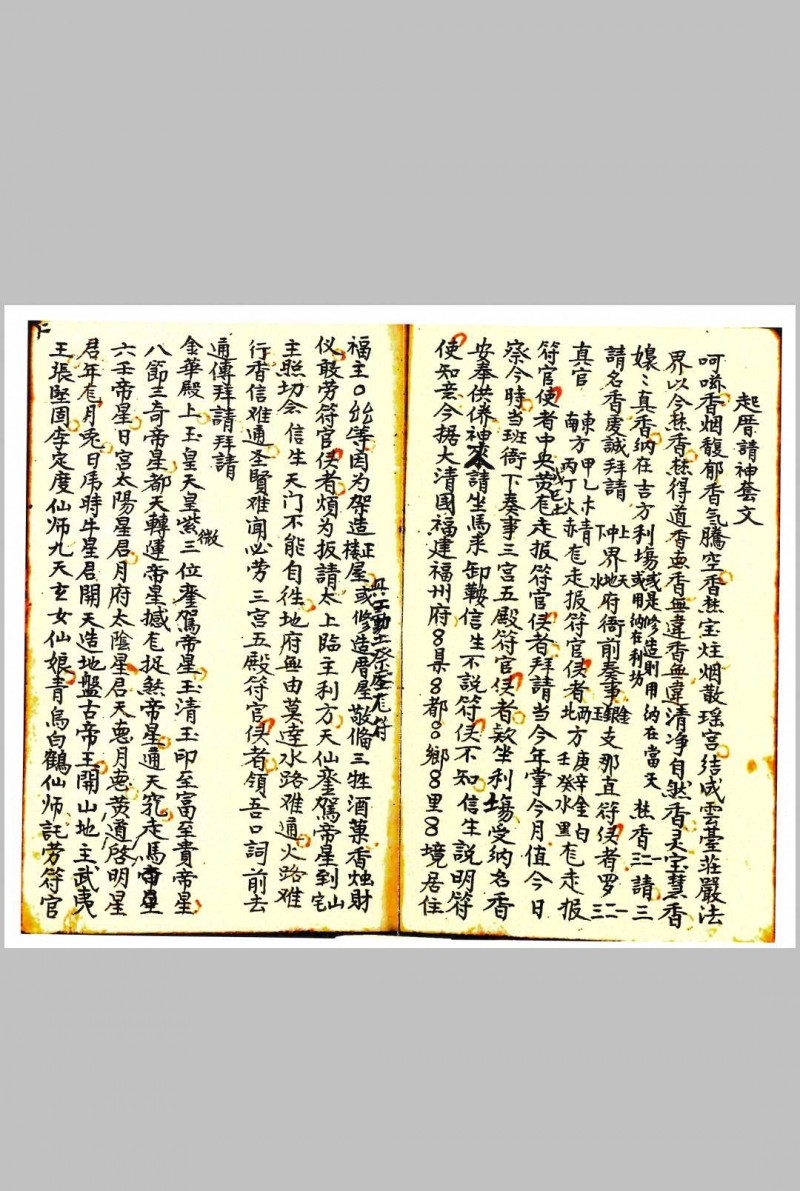 起厝請神莶文
呵嗞香烟馥郁香気騰空香焚宝炷烟散瑶宮结成雲臺莊嚴法
界以今焚香焚得道香惪香無違香無違清净自然香灵宝慧香
嬝〻真香纳在吉方利場或是修造則用纳在當天或用纳在利坊焚香三請三
請名香虔誠拜請上中下界天地水府衙前奏事金銀玉支那直符使者罗一二三
真官東方甲乙木青南方丙丁火赤虎走报符官使者西北方庚辛金白壬癸水黑虎走报
符官使者中央戊己土黄虎走报符官使者拜請当今年掌今月值今日
察今時当班衙下奏事三宫五殿符官使者欵坐利場受纳名香
安奉供养神本請坐馬来卸鞍信生不説符使不知信生説明符
使知意今据大清國福建福州府8县8都8鄉8里8境居住
福主〇〇等因为架造正楼屋或修造厝屋敬俻三牲酒菓香烛財
兴工動土
仪敢劳符官使者烦为扳請太上临主利方天仙銮駕帝星到山宅
主照切念信生天门不能自徃地府無由莫達水路难通火路难
行香信难通圣賢难闻必劳三宫五殿符官使者领吾口詞前去
通傳拜請拜請
金華殿上玉皇天皇紫微三位銮駕帝星玉清玉印至富至貴帝星
八節三奇帝星都天轉運帝星撼龙捉煞帝星通天竅走馬帝星
六壬帝星日宮太陽星君月府太陰星君天惪月惪黄道啓明星
君年虎月兎日虎時牛星君開天造地盤古帝王開山地主武夷
王張堅固李定度仙师九天玄女仙娘青烏白鶴仙师託劳符官